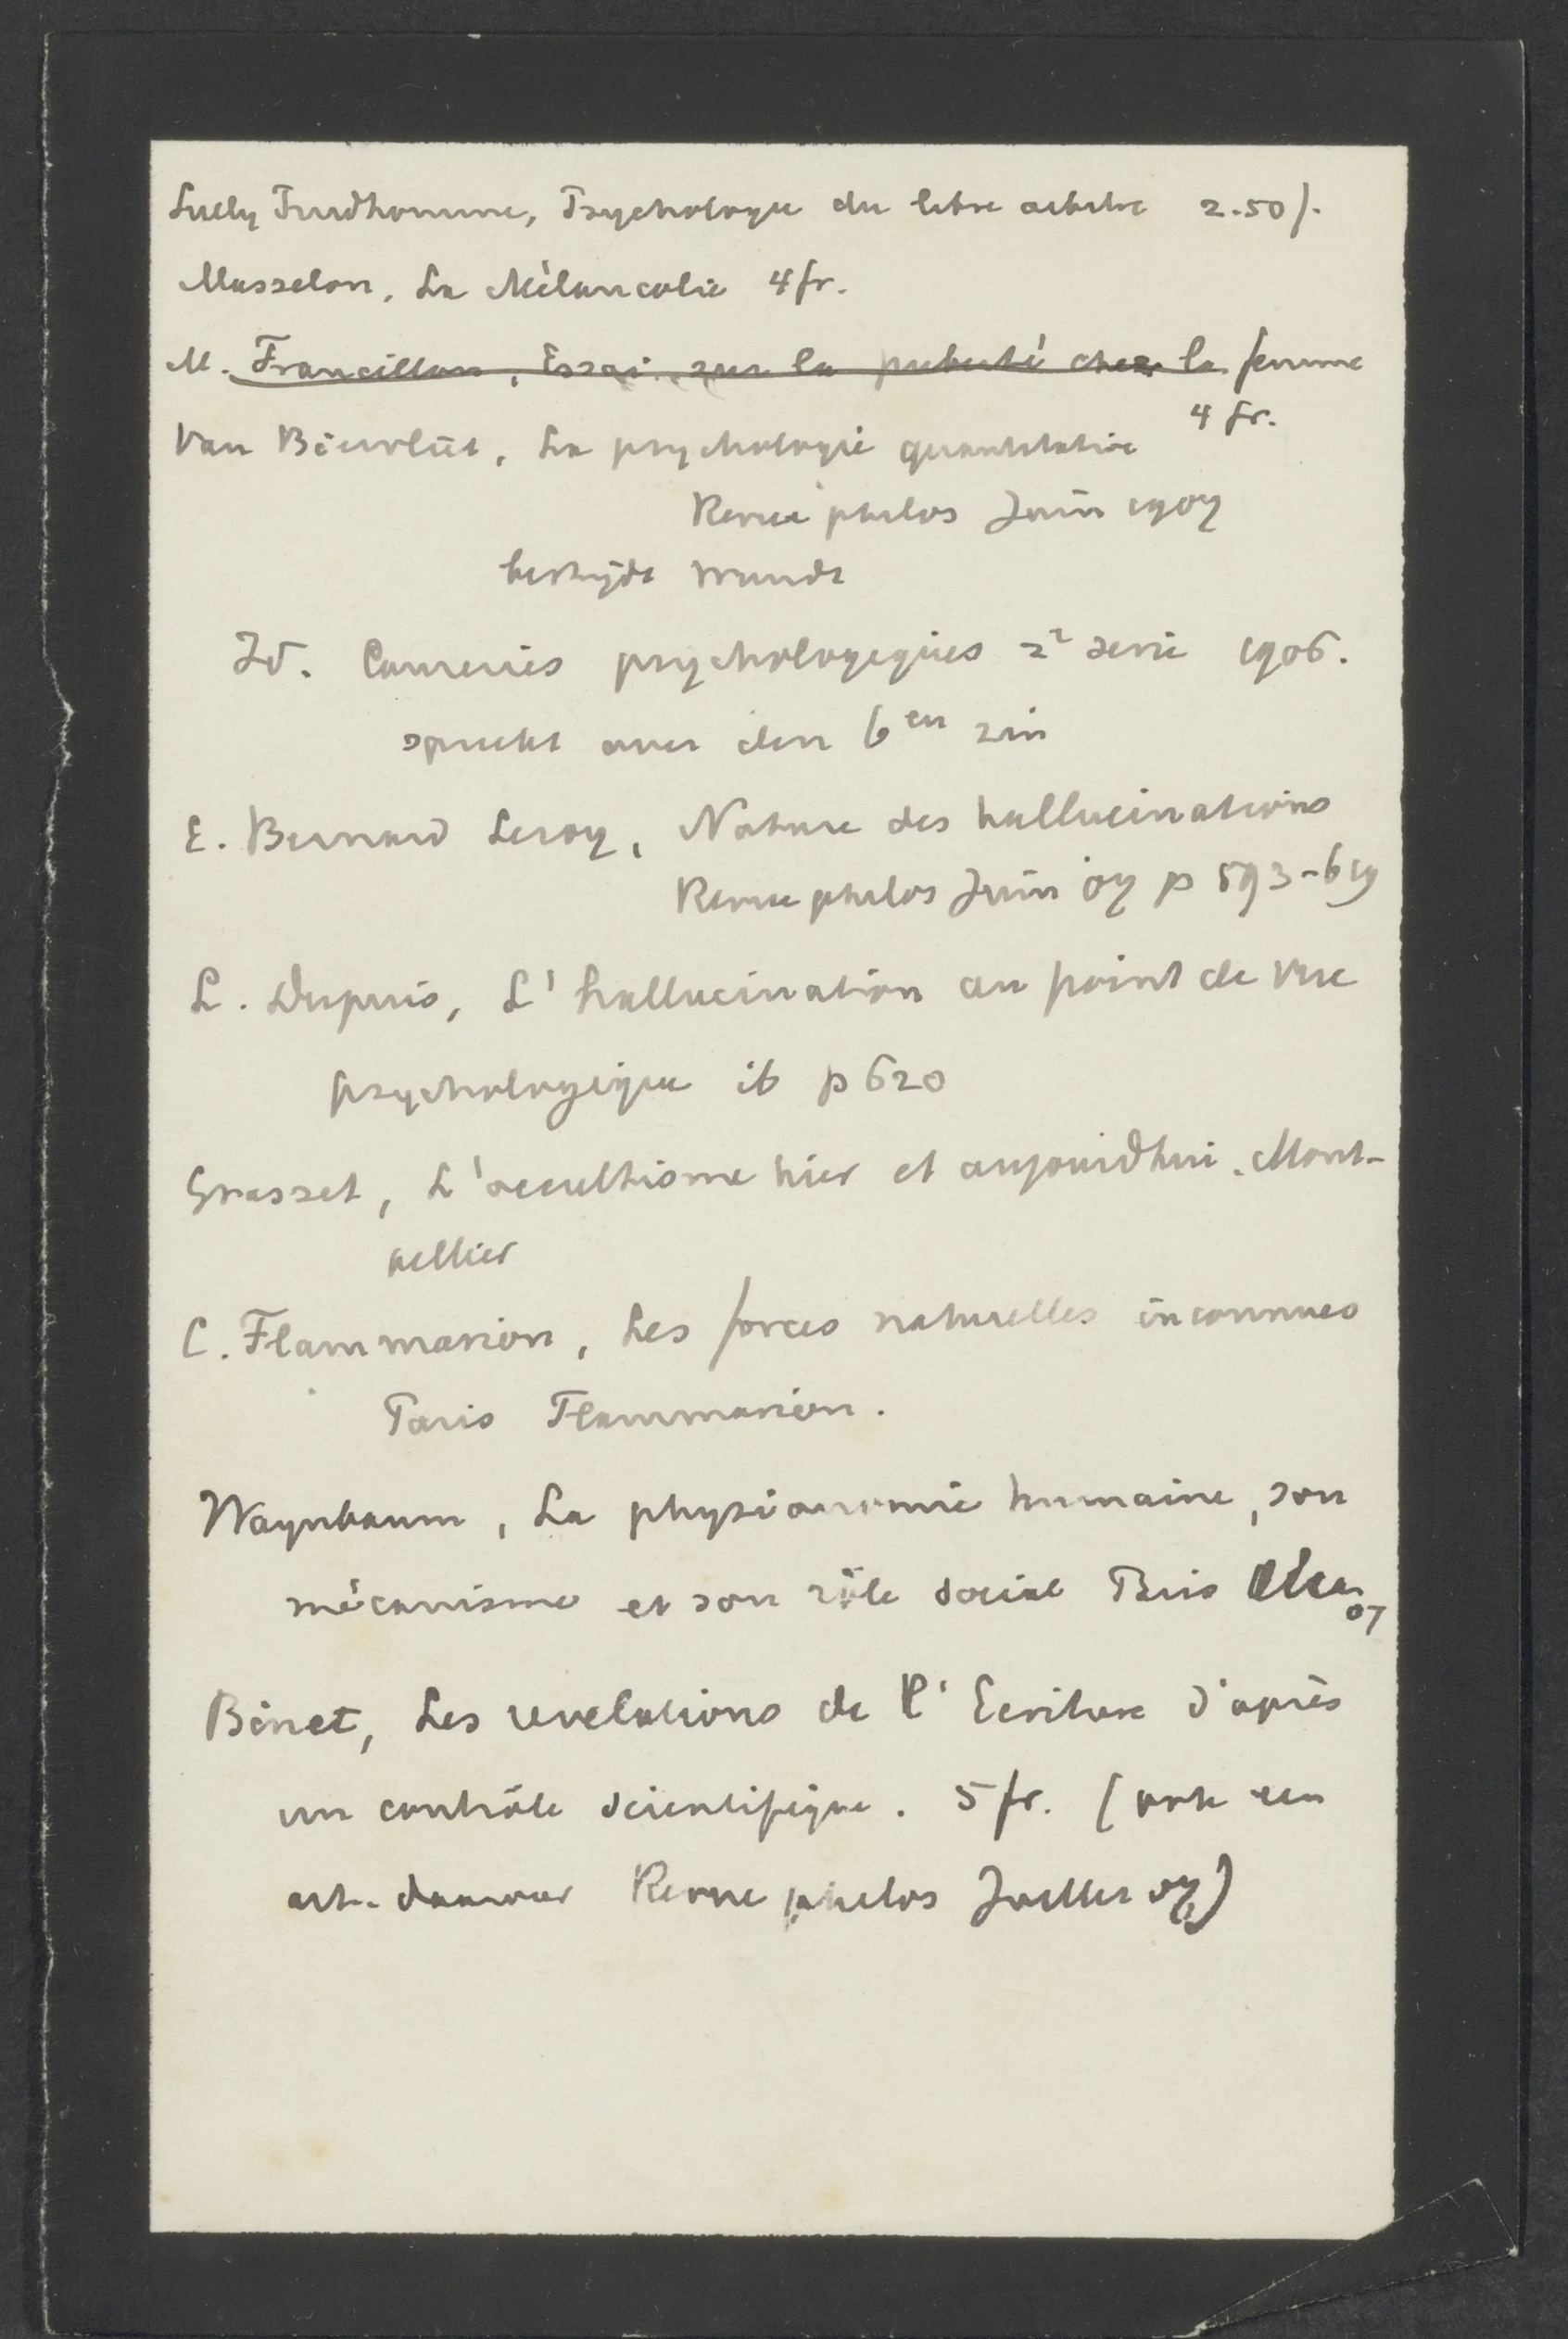 Sully Prudhomme, Psychologie du libre arbitre 2.50f.
Masselon, La Mélancolie 4 fr.
M. Francillon, Essai sur la puberté chez la femme
4 fr.
Van Biervliet, La psychologie quantitative
Revue philos Juin 1907
bestrijdt Wundt
Id. Causeries psychologiques 2e serie 1906.
spreekt over den 6en zin
E. Bernard Leroy, Nature des hallucinations
Revue philos Juin 07 p 593-619
L. Dupuis, L'hallucination au point de vue
psychologique ib p 620
Grasset, L'occultisme hier et aujourdhui. Mont-
pellier
C. Flammarion, Les forces naturelles inconnues
Paris Flammarion.
Waynbaum, La physionomie humaine, son
mécanisme et son rôle social Paris Alcan
07
Binet, Les revelations de l'Ecriture d'après
un contrôle scientifique. 5 fr. (ook een
art. daarover Revue philos Juillet 07)